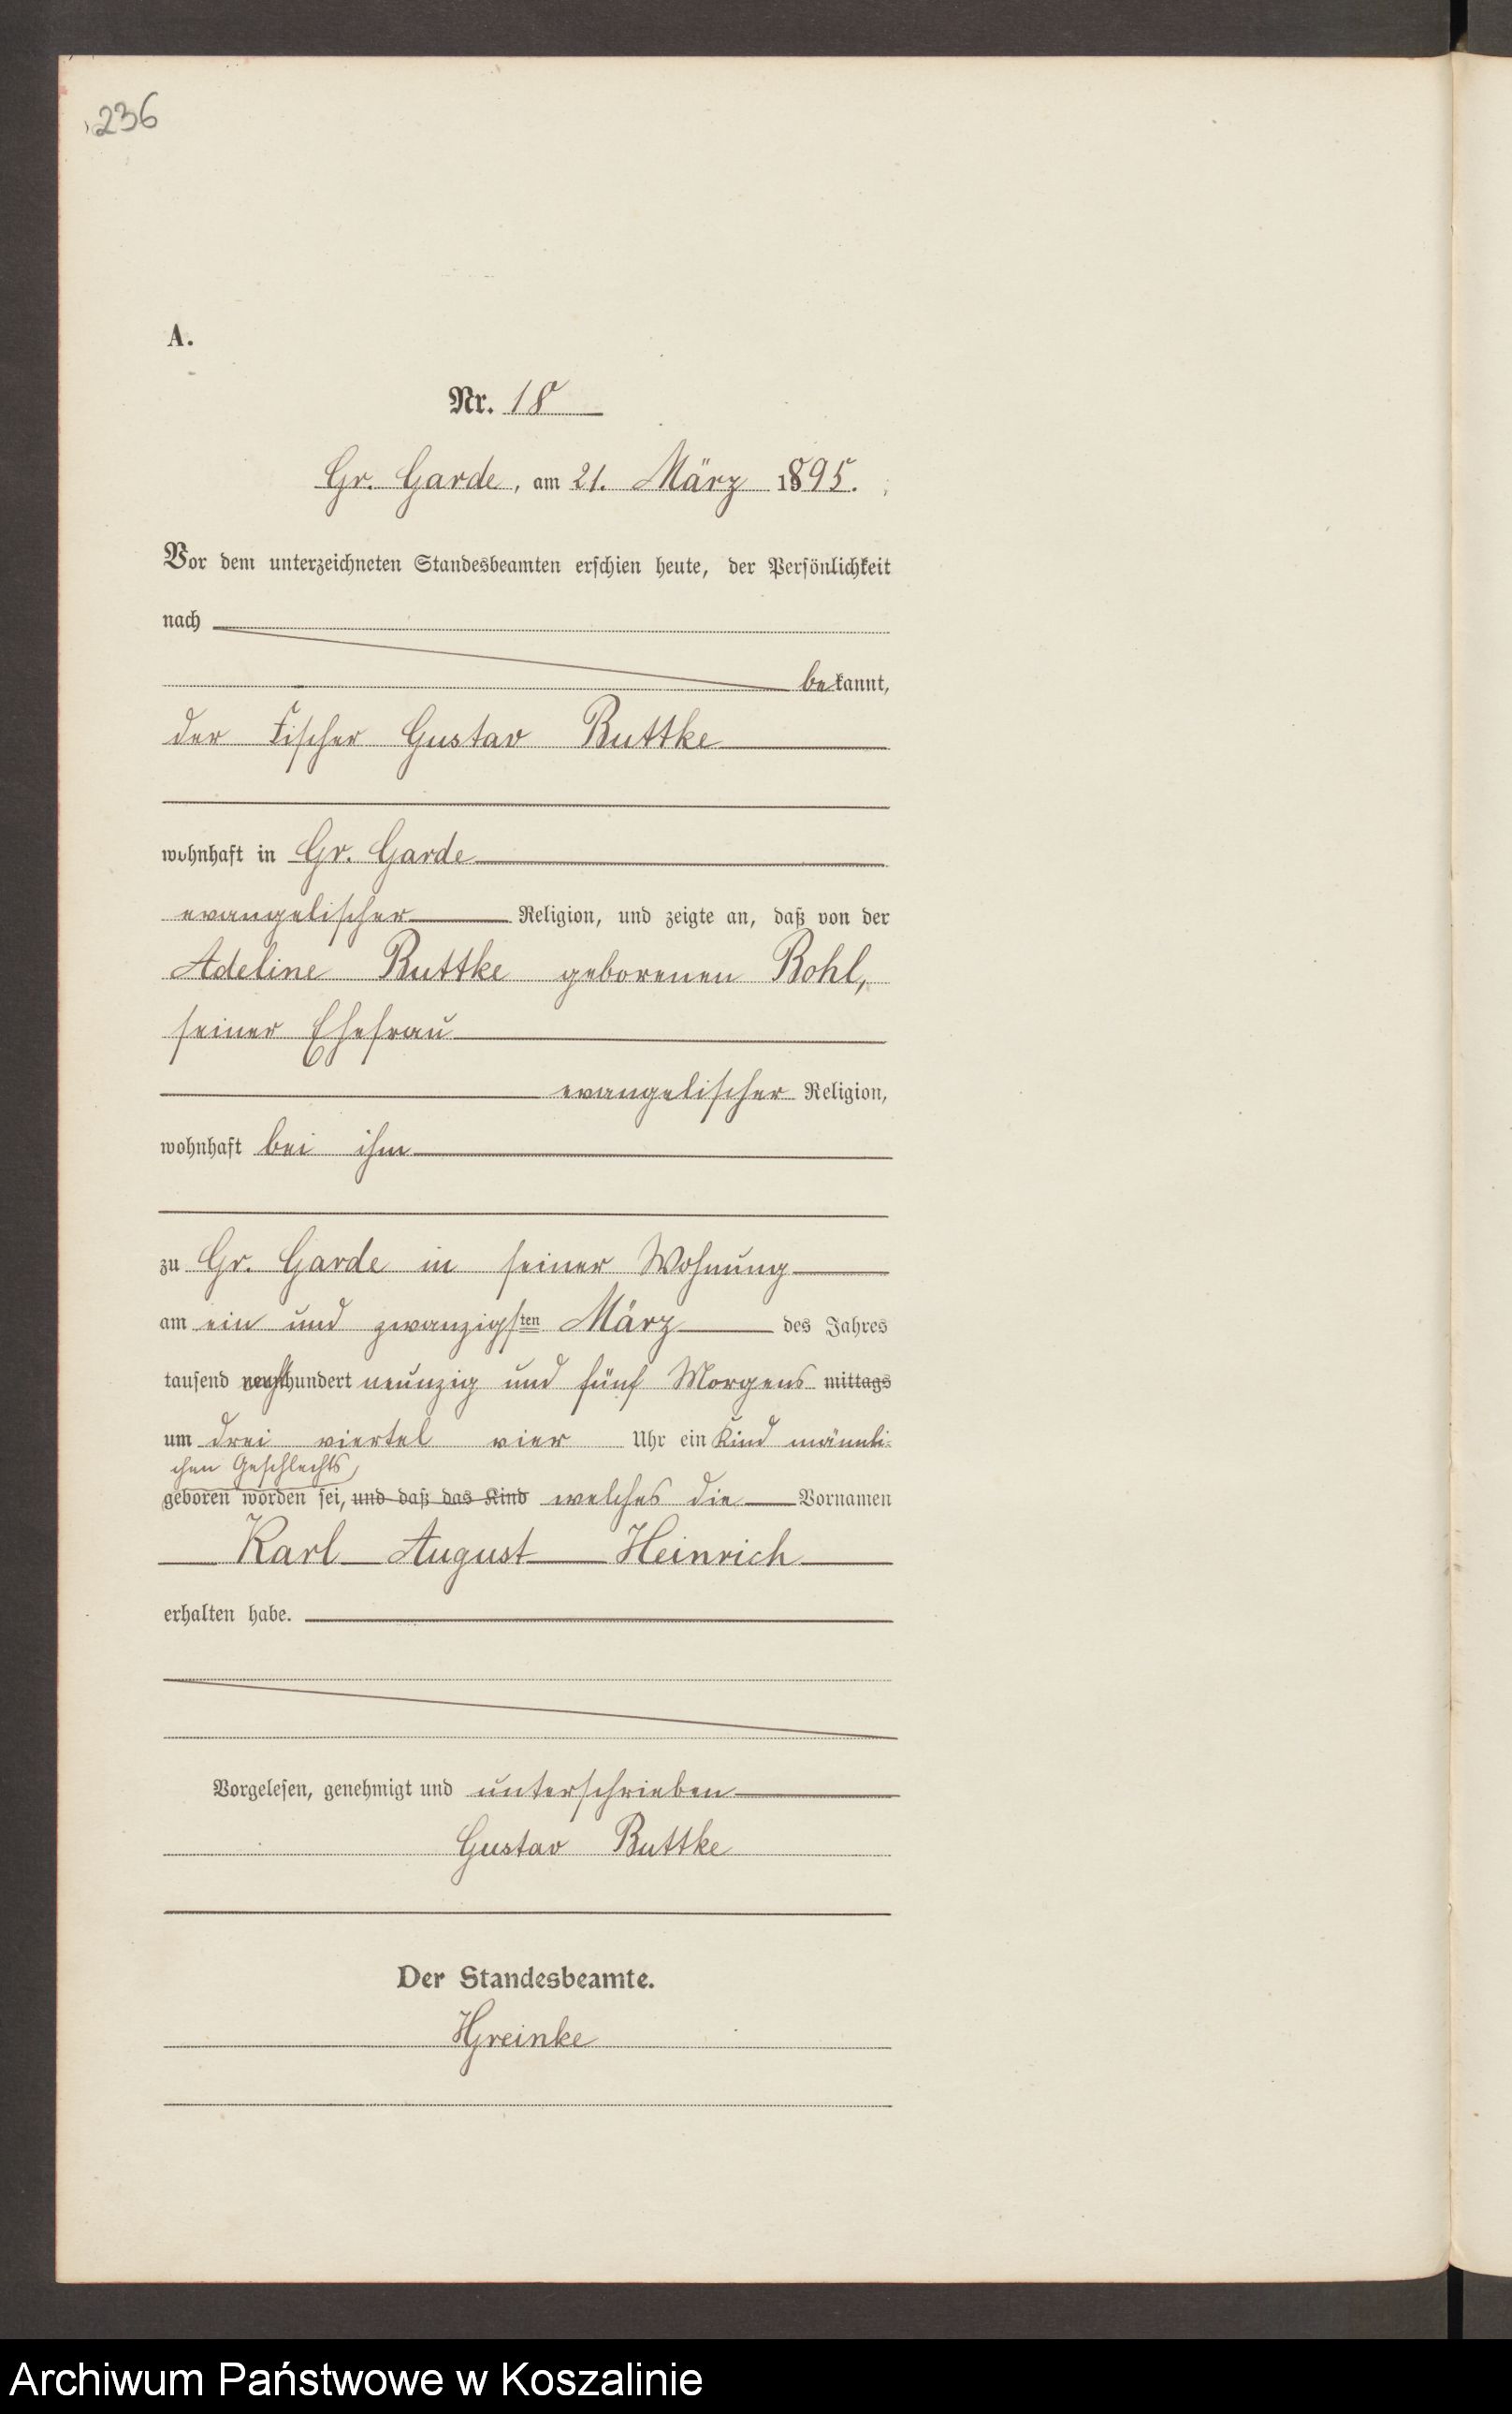 236
A.
Nr. 18
Gr. Garde, am 21. März 1895.
Vor dem unterzeichneten Standesbeamten erschien heute, der Persönlichkeit
nach
bekannt,
der Fischer Gustav Buttke
wohnhaft in Gr. Garde
evangelischer Religion, und zeigte an, daß von der
Adeline Buttke geborenen Bohl,
seiner Ehefrau
evangelischer Religion,
wohnhaft bei ihm
zu Gr. Garde in seiner Wohnung
am ein und zwanzigsten März des Jahres
tausend achthundert neunzig und fünf Morgens mittags
um drei viertel vier Uhr ein Kind männli-
chen Geschlechts
geboren worden sei, und daß das Kind welches die Vornamen
Karl August Heinrich
erhalten habe.
Vorgelesen, genehmigt und unterschrieben
Gustav Buttke
Der Standesbeamte.
HGreinke
Archiwum Państwowe w Koszalinie